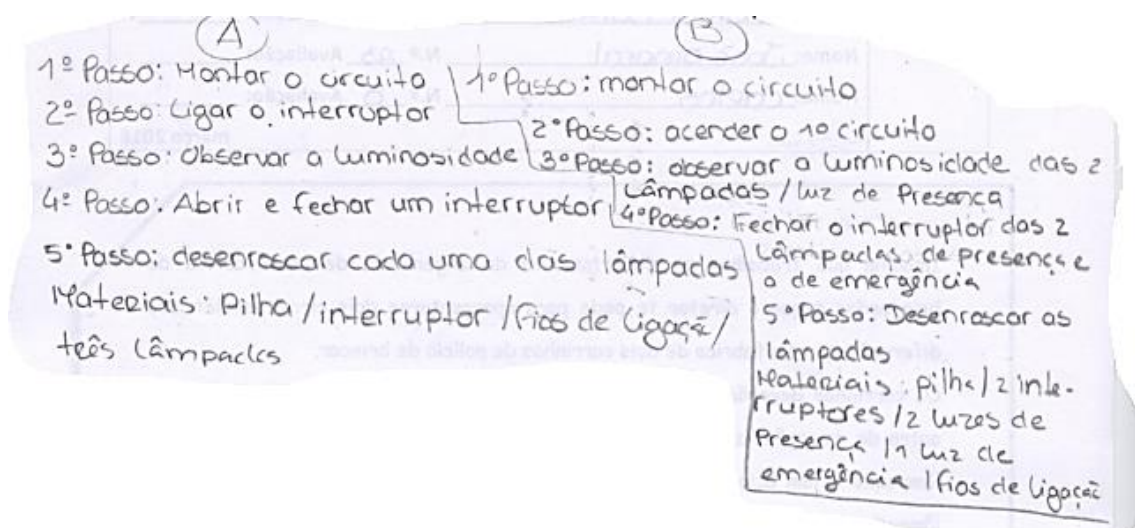 A
1º Passo: Montar o circuito
2º Passo: Ligar o interruptor
3º Passo: Observar a luminosidade
4º Passo: Abrir e fechar um interruptor
5º Passo: desenroscar cada uma das lâmpadas
Materiais: Pilha / interruptor / fios de ligaçã /
três lâmpadas
B
1º Passo: montar o circuito
2º Passo: acender o 1º circuito
3º Passo: observar a luminosidade das 2
lâmpadas / luz de Presença
4º Passo: Fechar o interruptor das 2
lâmpadas de presença e
o de emergência
5º Passo: Desenroscar as
lâmpadas
Materiais: pilha / 2 inte-
rruptores / 2 luzes de
Presença / 1 luz de
emergência / fios de ligação